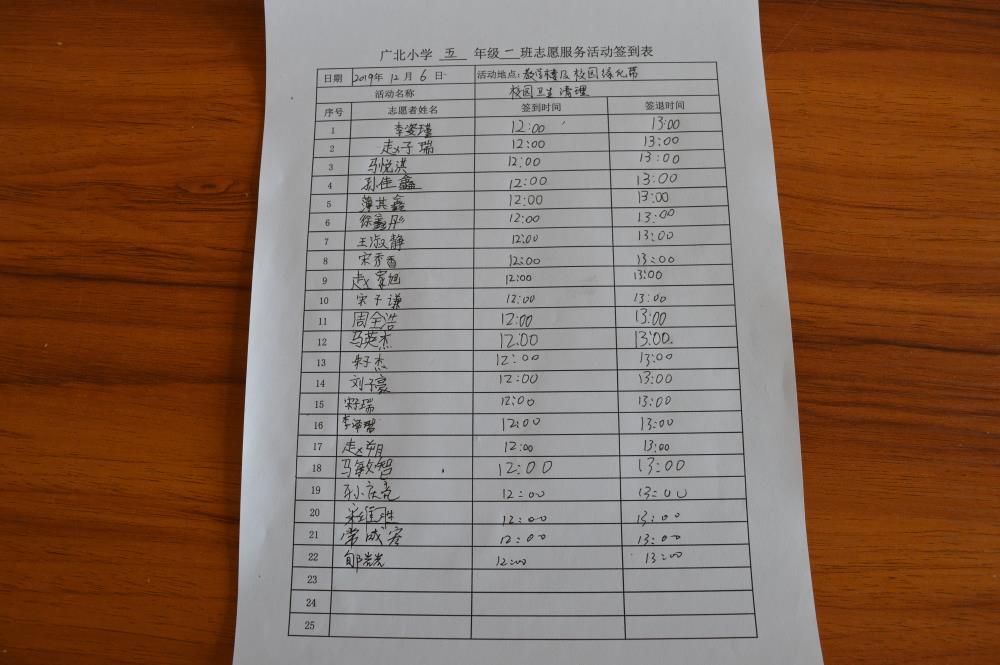 广北小学 五 年级 二 班志愿服务活动签到表
日期 2019年 12 月 6 日 活动地点：教学楼及校园绿化带
活动名称 校园卫生清理
序号 志愿者姓名 签到时间 签退时间
1 李姿瑾 12:00 13:00
2 赵子瑞 12:00 13:00
3 马悦淇 12:00 13:00
4 孙佳鑫 12:00 13:00
5 薄其鑫 12:00 13:00
6 徐鑫彤 12:00 13:00
7 王淑静 12:00 13:00
8 宋秀香 12:00 13:00
9 赵家旭 12:00 13:00
10 宋子谦 12:00 13:00
11 周全浩 12:00 13:00
12 马英杰 12:00 13:00
13 朱子杰 12:00 13:00
14 刘子豪 12:00 13:00
15 宋子瑞 12:00 13:00
16 李泽 12:00 13:00
17 赵翔 12:00 13:00
18 马敏智 12:00 13:00
19 孙庆亮 12:00 13:00
20 宋维胜 12:00 13:00
21 常成客 12:00 13:00
22 12:00 13:00
23
24
25